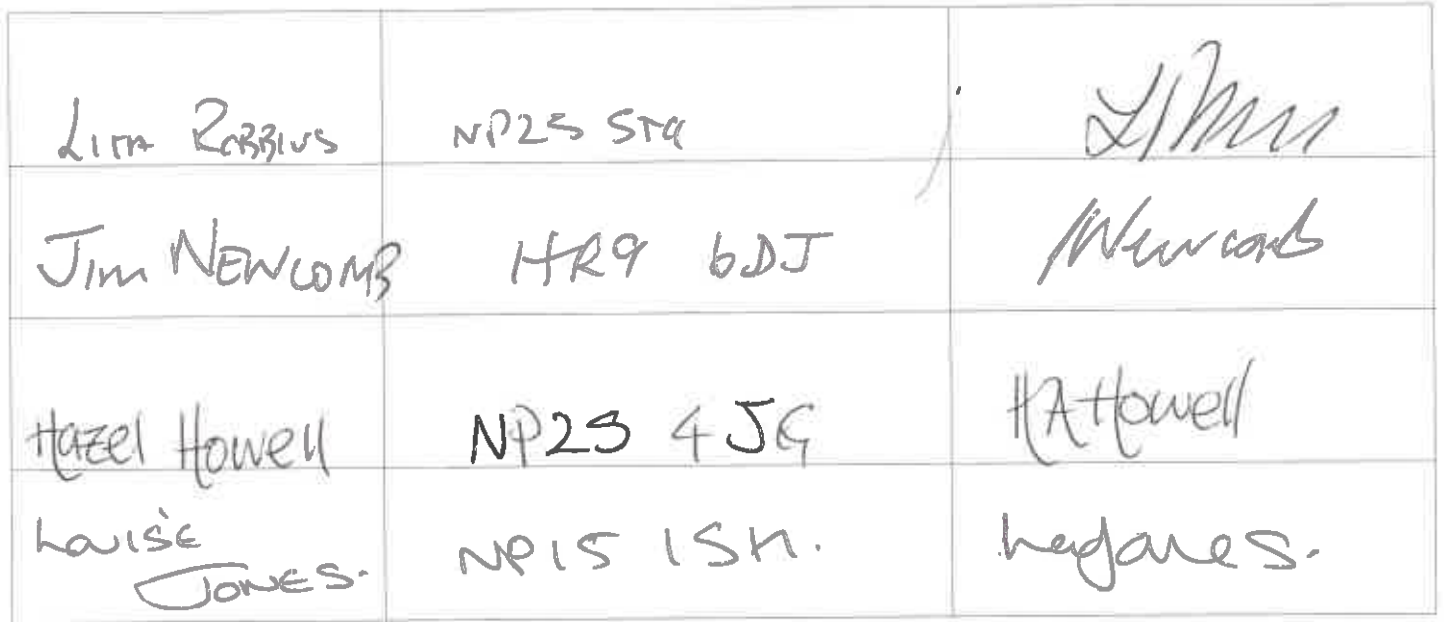 LITA ROBBINS NP25 5TA
JIM NEWCOMB HR9 6DJ JNewcomb
Hazel Howell NP25 4JG HAHowell
LOUISE NP15 1SH.
JONES.